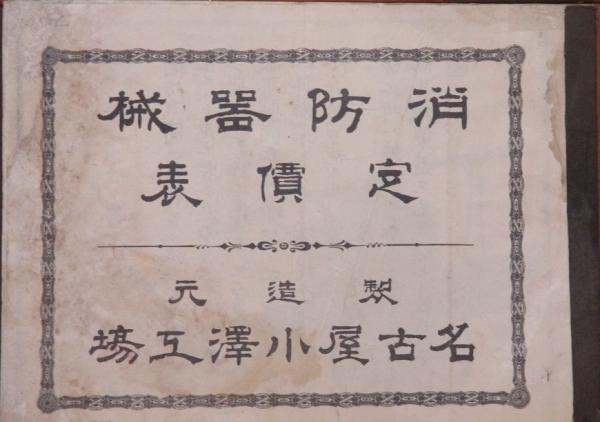 消防器械
定價表
製造元
名古屋小澤工場